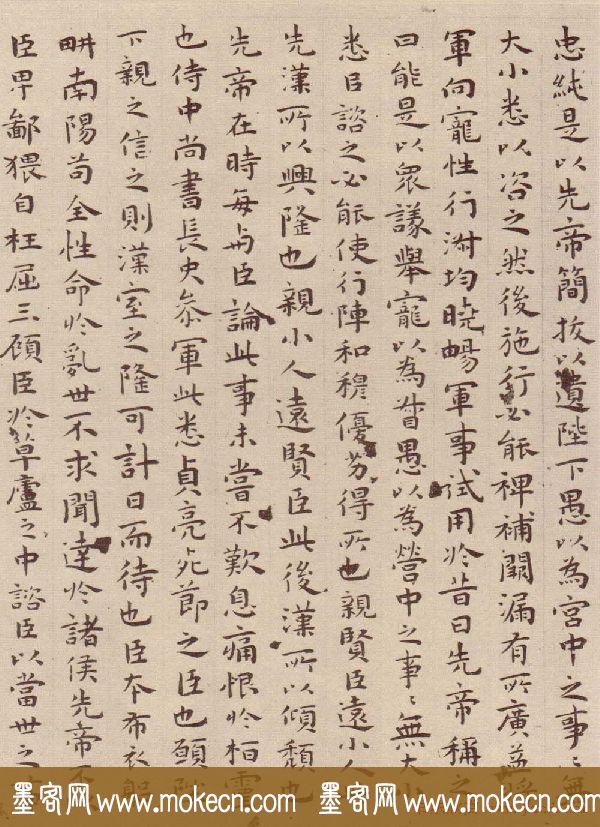 忠純是以先帝簡拔以遺陛下愚以為宮中之事〻無
大小悉以咨之然後施行必能裨補闕漏有所廣益將
軍向寵性行淑均曉暢軍事試用於昔日先帝稱之
曰能是以衆議舉寵以為督愚以為營中之事〻無大小
悉㠯諮之必能使行陣和穆優劣得所也親賢臣遠小人
先漢所以興隆也親小人遠賢臣此後漢所以傾頹也
先帝在時每与臣論此事未嘗不歎息痛恨於桓靈
也侍中尚書長史叅軍此悉貞亮死節之臣也願陛
下親之信之則漢室之隆可計日而待也臣本布衣躬
畊南陽苟全性命於亂世不求聞達於諸侯先帝不
臣卑鄙猥自枉屈三顧臣於草廬之中諮臣以當世之
墨客网 www.mokecn.com 墨客网 www.mokecn.com